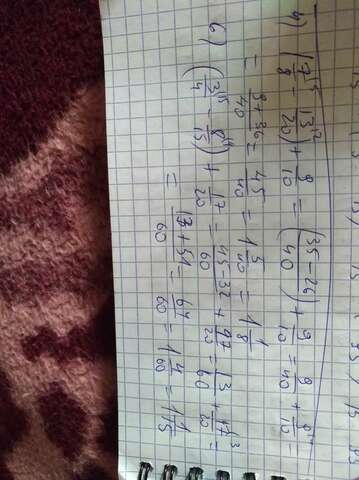 4) (7/8 ⁵ - 13/20 ²) + 9/10 = (35-26/40) + 9/10 = 9/40 + 9/10 ⁴ =
= 9+36/40 = 45/40 = 1 5/40 = 1 1/8
6) (3/4 ¹⁵ - 8/15 ⁴) + 17/20 = 45-32/60 + 17/20 = 13/60 + 17/20 ³ =
= 13+51/60 = 64/60 = 1 4/60 = 1 1/15